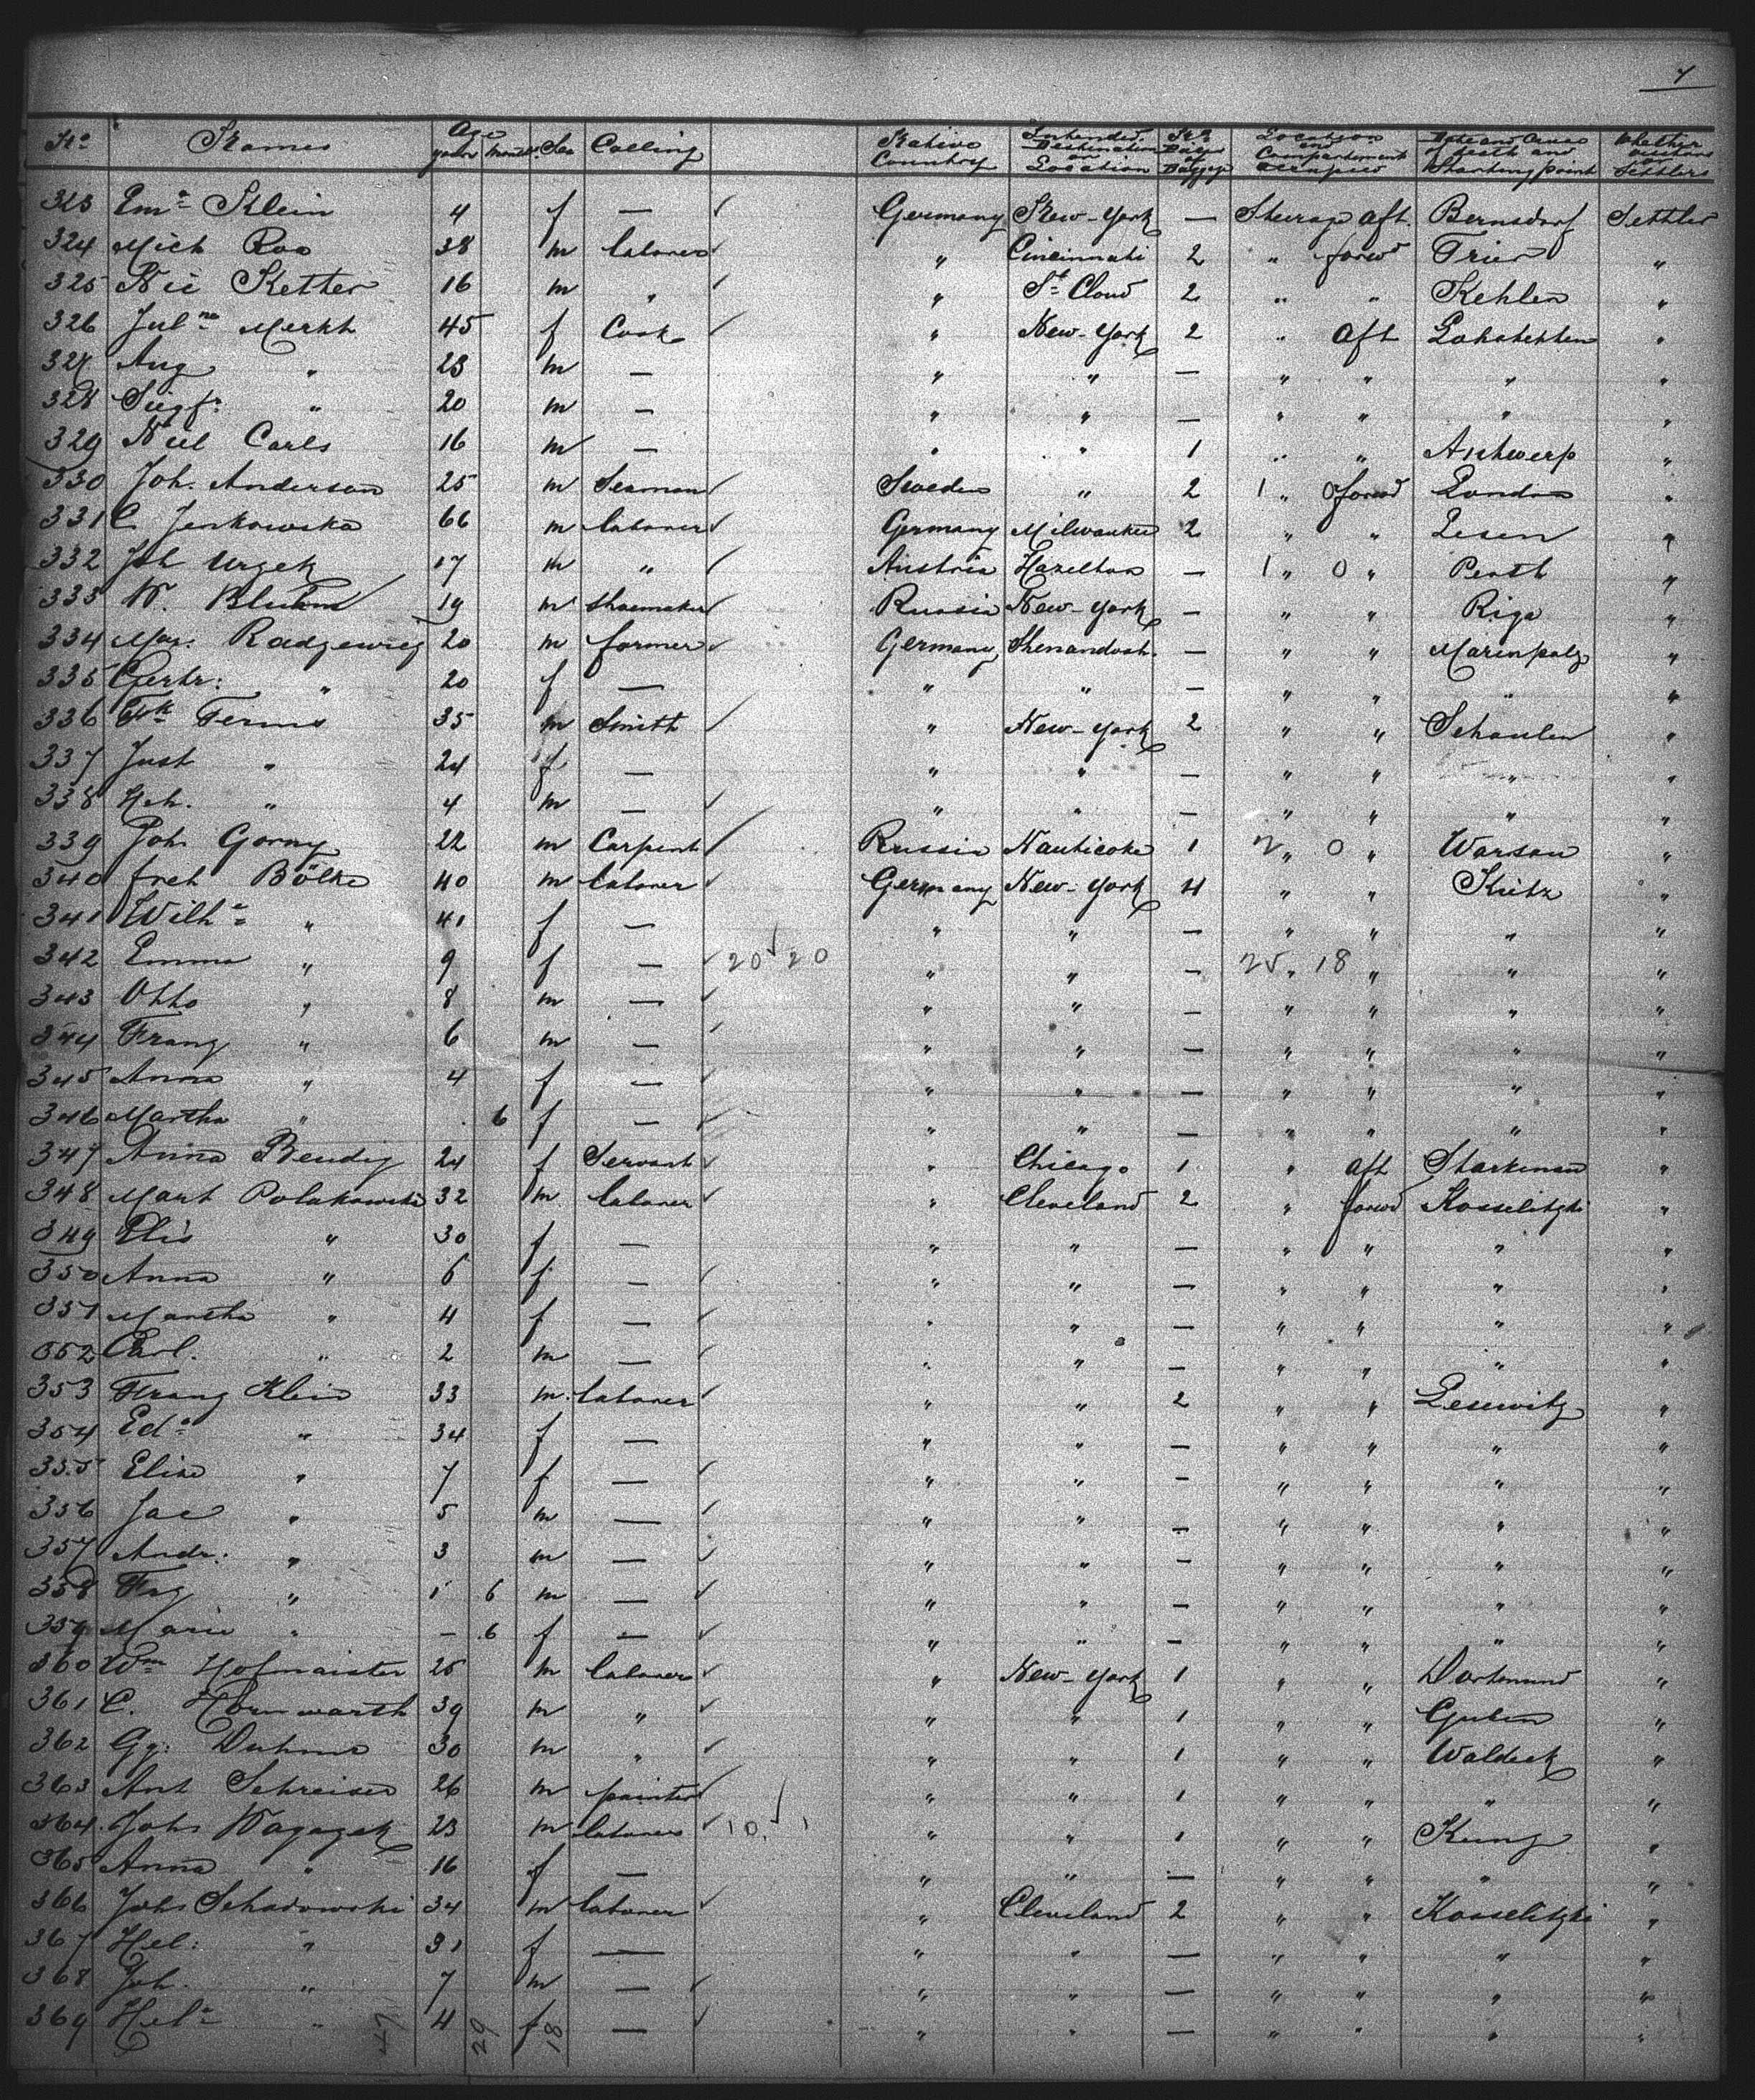 7
No Names Age years Months Sex Calling Native Country Intended Destination or Location No Pieces of Baggage Location and Compartment occupied Date and Cause of death and Starting point Whether visitors or Settlers
323 Ema Klein 4 f — Germany New-York — Steerage aft. Bernsdorf Settler
324 Mich Roo 38 m laborer " Cincinnati 2 " forwd Trier "
325 Nic Ketter 16 m " " St Cloud 2 " " Kehlen "
326 Julna Merkt 45 f Cook " New-York 2 " aft "
327 Aug " 23 m — " " — " " " "
328 Siegfr. " 20 m — " " — " " " "
329 Carls 16 m — " " 1 " " Antwerp "
330 Joh. Anderson 25 m Seaman Sweden " 2 1 " 0 forwd London "
331 C Jenkowska 66 m laborer Germany Milwaukee 2 " " Lesen "
332 Joh Urgek 17 m " Austria Hazelton — 1 " 0 " Pesth "
333 W. Bluhm 19 m Shoemaker Russia New-York — " " Riga "
334 Mar. Radzewieg 20 m farmer Germany Shenandoah. — " " Marienpolz "
335 Gertr: " 20 f — " " — " " " "
336 Ferms 35 m Smith " New-York 2 " " Schaulen "
337 Just " 24 f — " " — " " " "
338 Hch. " 4 m — " " — " " " "
339 Joh Gorny 22 m Carpent Russia Nanticoke 1 2 " 0 " Warsaw "
340 Frch Bölke 40 m laborer Germany New-York 4 " " Kütz "
341 Wilha " 41 f — " " — " " " "
342 Emma " 9 f — 20 20 " " — 25 " 18 " " "
343 Otto " 8 m — " " — " " " "
344 Franz " 6 m — " " — " " " "
345 Anna " 4 f — " " — " " " "
346 Martha " 6 f — " " — " " " "
347 Anna Bendig 24 f Servant " Chicago 1 " aft "
348 Mart Polakowski 32 m laborer " Cleveland 2 " forwd Kosselitzki "
349 Elis " 30 f — " " — " " " "
350 Anna " 6 f — " " — " " " "
351 Martha " 4 f — " " — " " " "
352 Carl. " 2 m — " " — " " " "
353 Franz Klein 33 m. laborer " " 2 " " Lesewitz "
354 Eda " 34 f — " " — " " " "
355 Elise " 7 f — " " — " " " "
356 Jac " 5 m — " " — " " " "
357 Andr: " 3 m — " " — " " " "
358 Frz " 1 6 m — " " — " " " "
359 Marie " — 6 f — " " — " " " "
360 Wm Hofmaister 25 m laborer " New-York 1 " " Dortmund "
361 C. Hornwarth 39 m " " " 1 " " Guben "
362 Gg: Duhme 30 m " " " 1 " " Waldeck "
363 Ant Schreiser 26 m painter " " 1 " " " "
364. Joh Wagazek 23 m laborer 10. 1 " " 1 " " Kung "
365 Anna " 16 f — " " — " " " "
366 Joh Schadowski 34 m laborer " Cleveland 2 " " Kosselitzki "
367 Hel: " 31 f — " " — " " " "
368 Joh. " 7 m — " " — " " " "
369 Hela " 4 f — " " — " " " "
47 29 18